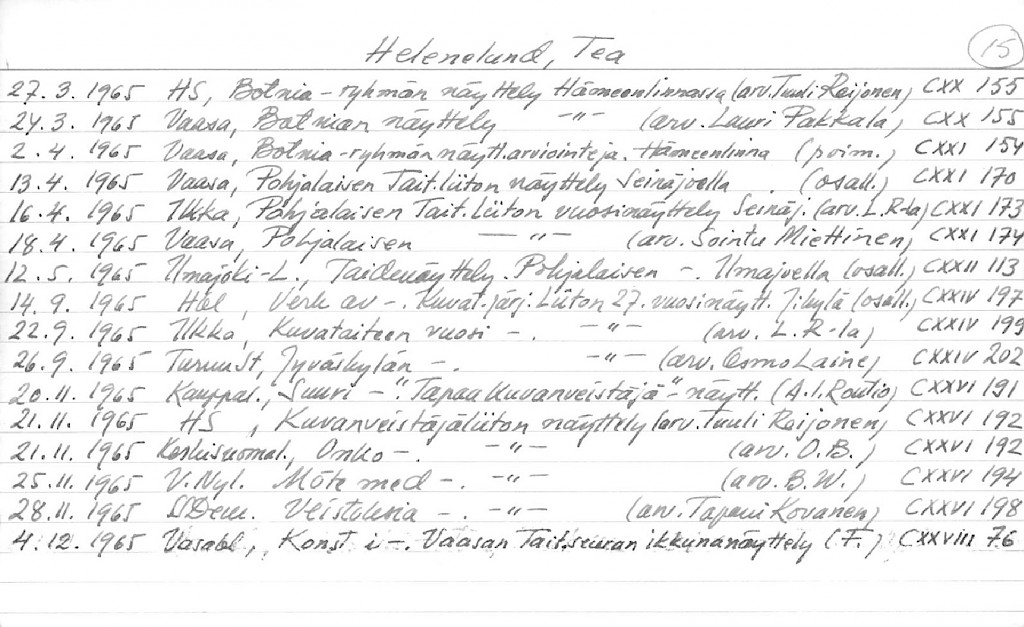 Helenelund, Tea
15
27.3.1965 HS, Botnia-ryhmän näyttely Hämeenlinnassa (arv. Tuuli Reijonen) CXX 155
24.3.1965 Vaasa, Botnian näyttely -"- (arv. Lauri Pakkala) CXX 155
2.4.1965 Vaasa, Botnia-ryhmän näytt. arviointeja. Hämeenlinna (poim.) CXXI 154
13.4.1965 Vaasa, Pohjalaisen Tait.liiton näyttely Seinäjoella. (osall.) CXXI 170
16.4.1965 Ilkka, Pohjalaisen Tait.Liiton vuosinäyttely Seinäj. (arv. L.R-la) CXXI 173
18.4.1965 Vaasa, Pohjalaisen -"- (arv. Sointu Miettinen) CXXI 174
12.5.1965 Ilmajoki-L., Taidenäyttely. Pohjalaisen -. Ilmajoella (osall.) CXXII 113
14.9.1965 Hbl, Verk av -. Kuvat.järj. Liiton 27. vuosinäytt. Jkylä (osall.) CXXIV 197
22.9.1965 Ilkka, Kuvataiteen vuosi -. -"- (arv. L.R-la) CXXIV 199
26.9.1965 TurunSt, Jyväskylän -. -"- (arv. Osmo Laine) CXXIV 202
20.11.1965 Kauppal., Suuri -. "Tapaa kuvanveistäjä"-näytt. (A.I. Routio) CXXVI 191
21.11.1965 HS, Kuvanveistäjäliiton näyttely (arv. Tuuli Reijonen) CXXVI 192
21.11.1965 Keskisuomal., Onko -. -"- (arv. O.B.) CXXVI 192
25.11.1965 V.Nyl. Möte med -. -"- (arv. B.W.) CXXVI 194
28.11.1965 Veistoksia -. -"- (arv. Tapani Kovanen) CXXVI 198
4.12.1965 Vasabl., Konst i -. Vaasan Tait.seuran ikkunanäyttely (F.) CXXVIII 76